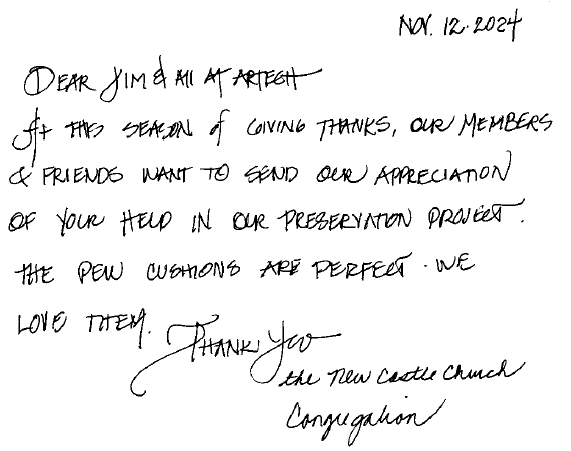 Nov. 12. 2024
Dear Jim & All at Artech
At this season of giving thanks, our members
& friends want to send our appreciation
of your help in our preservation project.
The pew cushions are perfect. We
love them.
Thank You
the New Castle Church
Congregation